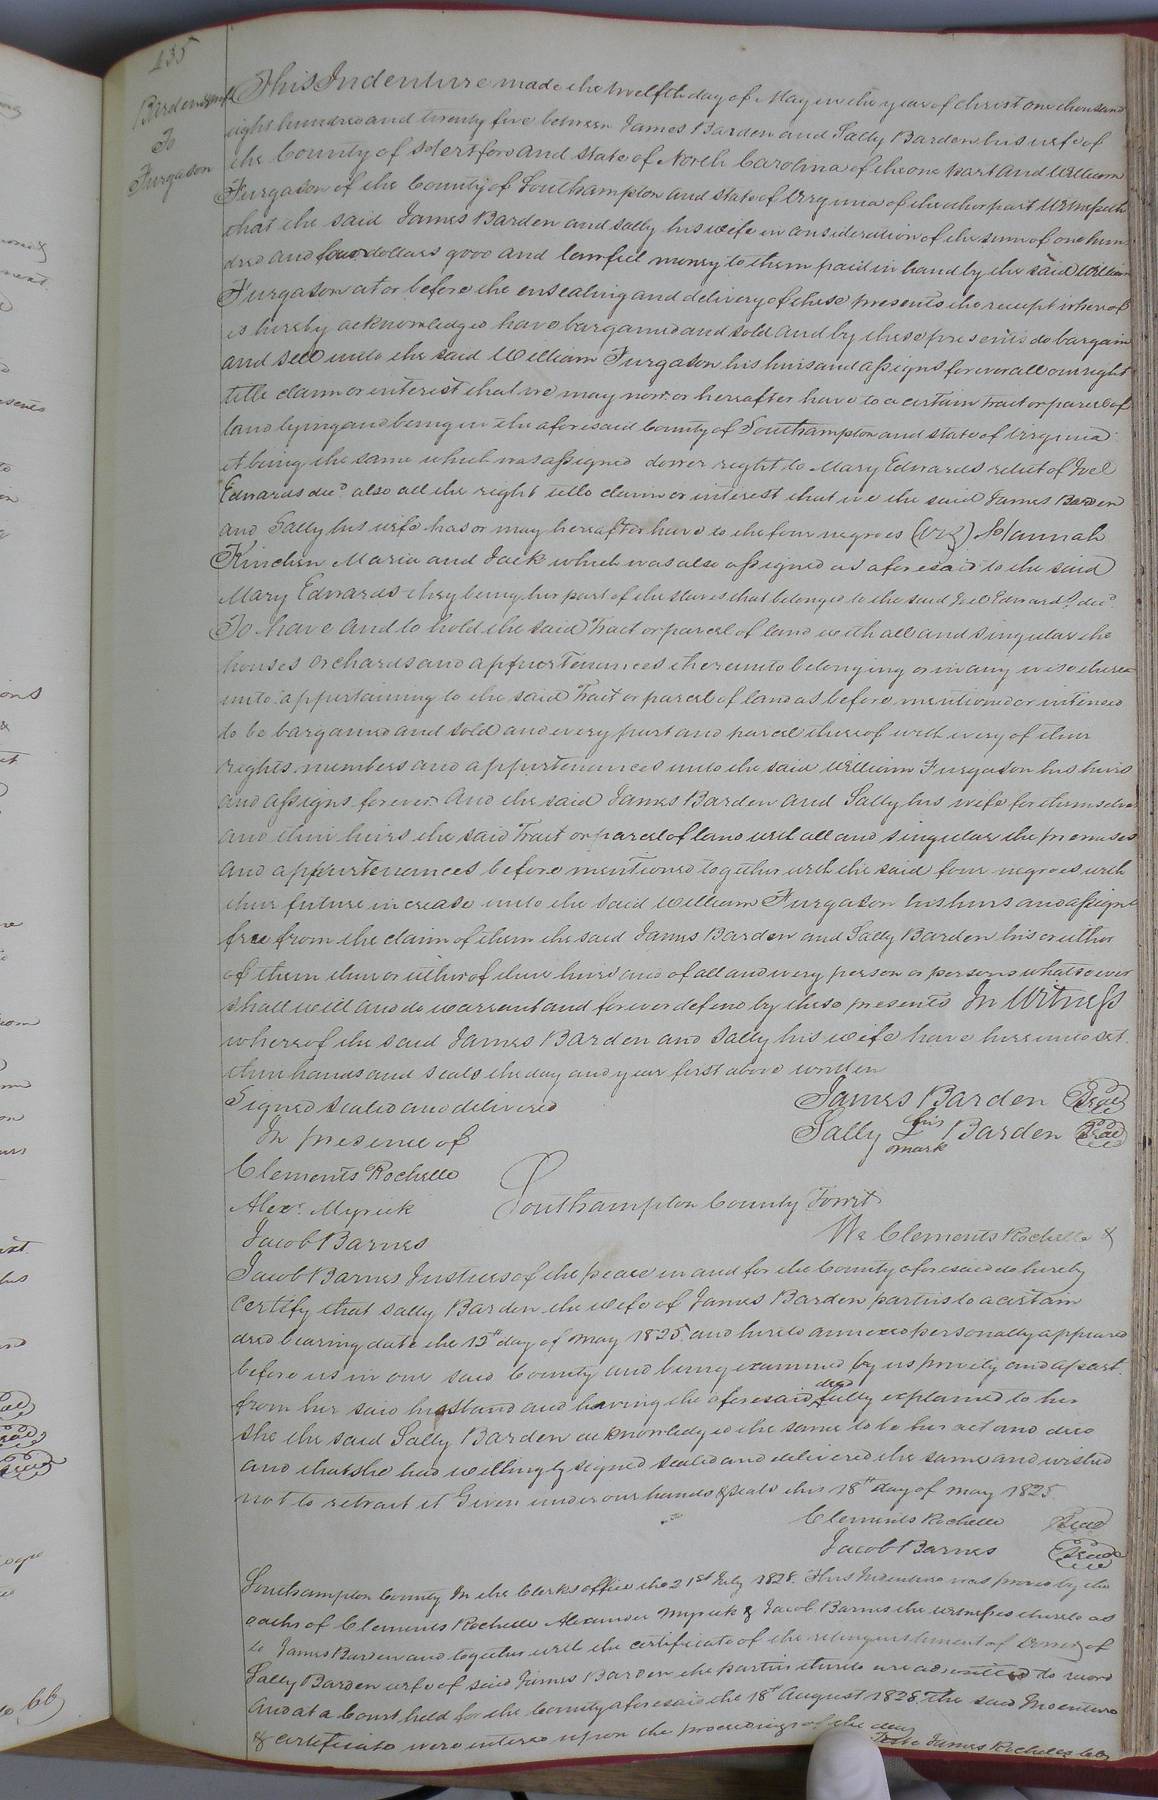 135
Barden & wife
To
Furgason
This Indenture made the twelfth day of May in the year of Christ one thousand
eight hundred and twenty five between James Barden and Sally Barden his wife of
the County of Hertford and State of North Carolina of the one part and William
Furgason of the County of Southampton and State of Virginia of the other part Witnesseth
that the said James Barden and Sally his wife in consideration of the sum of one hun
dred and four dollars good and lawful money to them paid in hand by the said William
Furgason at or before the ensealing and delivery of these presents the receipt whereof
is hereby acknowledged have bargained and sold and by these presents do bargain
and sell unto the said William Furgason his heirs and assigns forever all our right
title claim or interest that we may now or hereafter have to a certain Tract or parcel of
land lying and being in the aforesaid County of Southampton and State of Virginia
it being the same which was assigned dower right to Mary Edwards relict of Joel
Edwards decd. also all the right title claim or interest that we the said James Barden
and Sally his wife has or may hereafter have to the four negroes (viz) Hannah
Kinchin Maria and Jack which was also assigned as aforesaid to the said
Mary Edwards they being her part of the slaves that belonged to the said Joel Edwards decd.
To have and to hold the said Tract or parcel of land with all and singular the
houses orchards and appurtenances thereunto belonging or in any wise there
unto appertaining to the said Tract or parcel of land as before mentioned or intended
to be bargained and sold and every part and parcel thereof with every of their
rights members and appurtenances unto the said William Furgason his heirs
and assigns forever. And the said James Barden and Sally his wife for themselves
and their heirs the said Tract or parcel of land with all and singular the premises
and appurtenances before mentioned together with the said four negroes with
their future increase unto the said William Furgason his heirs and assigns
free from the claim of them the said James Barden and Sally Barden his or either
of them their or either of their heirs and of all and every person or persons whatsoever
shall will and do warrant and forever defend by these presents In Witness
whereof the said James Barden and Sally his wife have hereunto set
their hands and seals the day and year first above written
Signed sealed and delivered
James Barden Seal
In presence of
Sally her mark Barden Seal
Clements Rochelle
Alexr. Myrick
Southampton County To wit
Jacob Barnes
We Clements Rochelle &
Jacob Barnes Justices of the peace in and for the County aforesaid do hereby
certify that Sally Barden the wife of James Barden parties to a certain
deed bearing date the 12th day of May 1825 and hereto annexed personally appeared
before us in our said County and being examined by us privily and apart
from her said husband and having the aforesaid deed fully explained to her
she the said Sally Barden acknowledged the same to be her act and deed
and that she had willingly signed sealed and delivered the same and wished
not to retract it Given under our hands & seals this 18th day of May 1825
Clements Rochelle Seal
Jacob Barnes Seal
Southampton County In the Clerks office the 21st July 1828. This Indenture was proved by the
oaths of Clements Rochelle Alexander Myrick & Jacob Barnes the witnesses thereto as
to James Barden and together with the certificate of the relinquishment of Dower of
Sally Barden wife of said James Barden the parties thereto are admitted to record
And at a Court held for the County aforesaid the 18th August 1828. The said Indenture
& certificate were entered upon the proceedings of the day
Teste James Rochelle